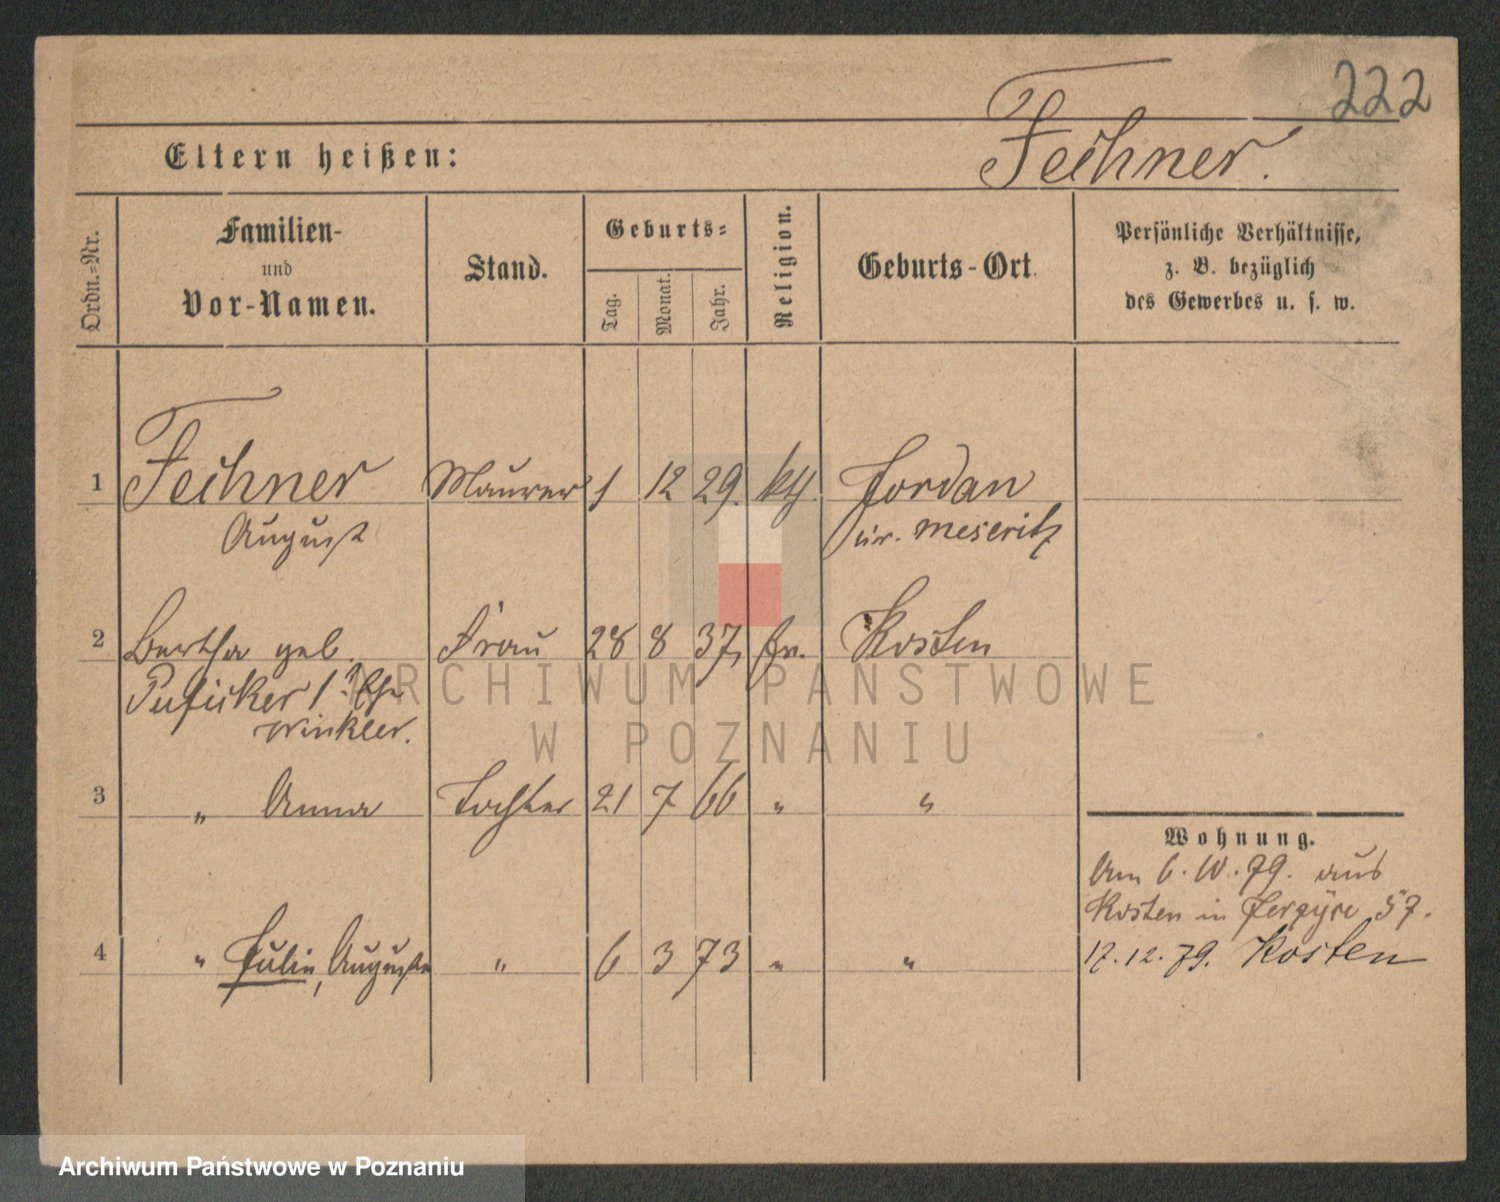 222
Fechner.
Eltern heißen:
Ordn.=Nr.
Familien-
und
Vor-Namen.
Stand.
Geburts=
Tag.
Monat.
Jahr.
Religion.
Geburts-Ort.
Persönliche Verhältnisse,
z. B. bezüglich
des Gewerbes u. s. w.
1 Fechner Maurer 1 12 29. kth Jordan
August Meseritz
2 Bertha geb. Frau 28 8 37, Kosten
Winkler.
3 " Anna Tochter 21 7 66 " "
4 " Julie, Auguste " 6 3 73 " "
Wohnung.
Am 6. 10. 79. aus
Kosten in Jerzyce 57.
17. 12. 79. Kosten
ARCHIWUM PAŃSTWOWE
W POZNANIU
Archiwum Państwowe w Poznaniu